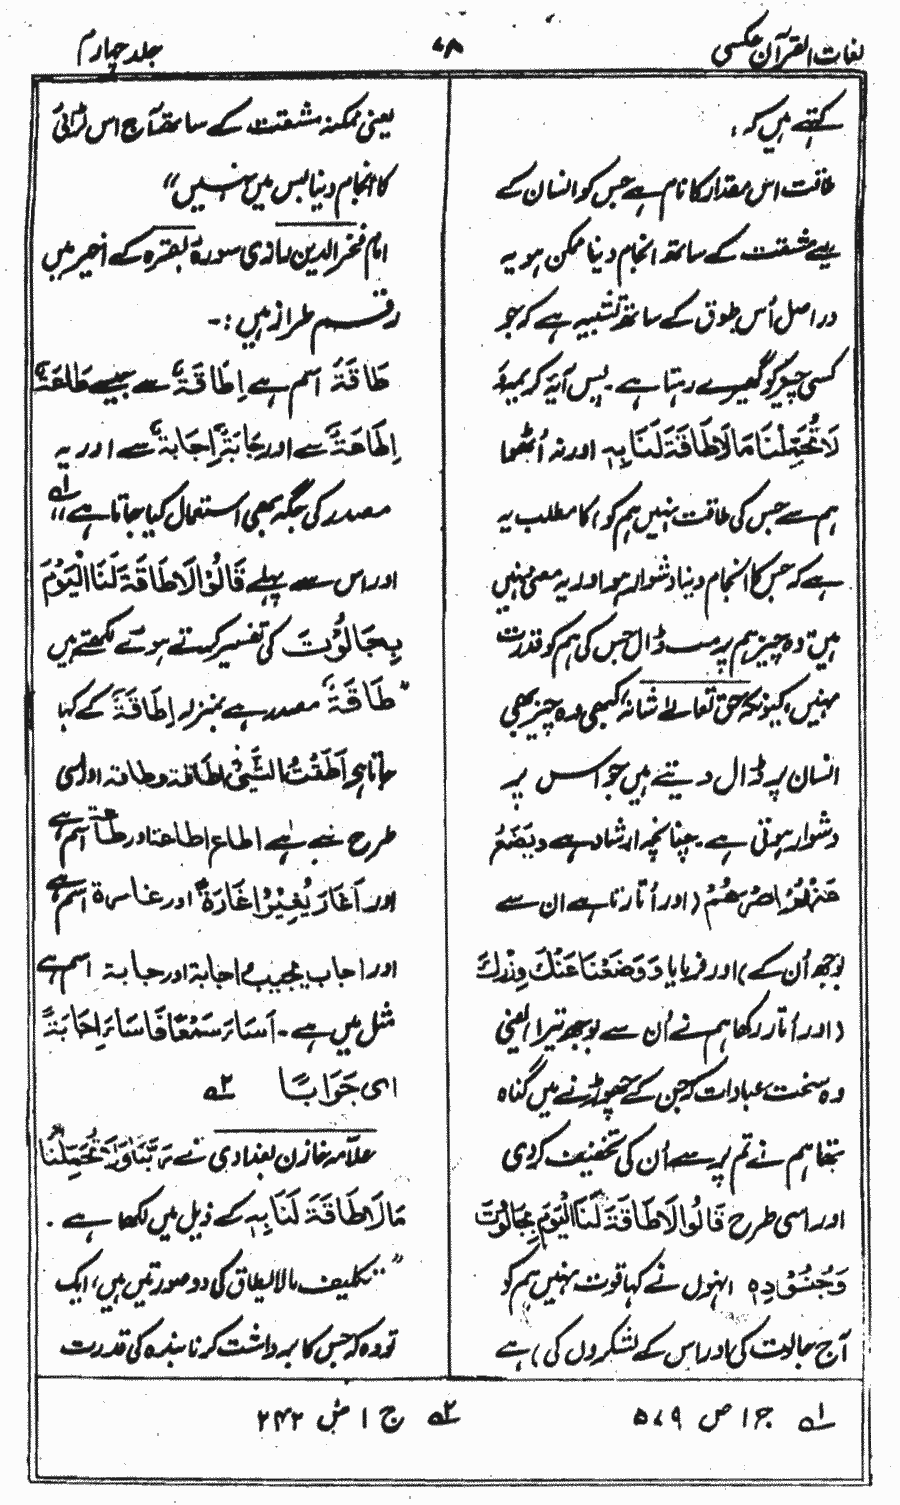 لغات القرآن عکسی
۷۸
جلد چہارم
کہتے ہیں کہ :
طاقت اس مقدار کا نام ہے جس کو انسان کے
لیے مشقت کے ساتھ انجام دینا ممکن ہو یہ
دراصل اُس طوق کے ساتھ تشبیہ ہے کہ جو
کسی چیز کو گھیرے رہتا ہے۔ پس آیۃ کریمہ وَ
لَا تُحَمِّلْنَا مَالَا طَاقَةَ لَنَا بِہٖ اور نہ اُٹھوا
ہم سے جس کی طاقت نہیں ہم کو، کا مطلب یہ
ہے کہ جس کا انجام دینا دشوار ہو اور یہ معنی نہیں
ہیں تو وہ چیز ہم پر مت ڈال جس کی ہم کو قدرت
نہیں، کیونکہ حق تعالےٰ شانہٗ کبھی وہ چیز بھی
انسان پر ڈال دیتے ہیں جو اس پر
دشوار ہوتی ہے۔ چنانچہ ارشاد ہے وَیَضَعُ
عَنْهُمْ اِصْرَهُمْ (اور اُتارتا ہے ان سے
بوجھ اُن کے) اور فرمایا وَوَضَعْنَا عَنْكَ وِزْرَكَ
(اور اُتار رکھا ہم نے اُن سے بوجھ تیرا) یعنی
وہ سخت عبادات کہ جن کے چھوڑنے میں گناہ
تھا ہم نے تم پر سے اُن کی تخفیف کر دی
اور اسی طرح قَالُوا لَا طَاقَةَ لَنَا الْيَوْمَ بِجَالُوْتَ
وَجُنُوْدِہٖ انہوں نے کہا قوت نہیں ہم کو
آج جالوت کی اور اس کے لشکروں کی) ہے
یعنی ممکنہ مشقت کے ساتھ آج اس لڑائی
کا انجام دینا بس میں نہیں“
امام فخر الدین رازی سورۂ بقرہ کے اخیر میں
رقم طراز ہیں :۔
طَاقَةٌ اسم ہے اِطَاقَةٌ سے جیسے طَاعَةٌ
اِطَاعَةٌ سے اور جَابَةٌ اِجَابَةٌ سے اور یہ
مصدر کی جگہ بھی استعمال کیا جاتا ہے“ ۱؎
اور اس سے پہلے قَالُوْا لَا طَاقَةَ لَنَا الْيَوْمَ
بِجَالُوْتَ کی تفسیر کرتے ہوئے لکھتے ہیں
”طَاقَةٌ مصدر ہے بمنزلہ اِطَاقَةٌ کے کہا
جاتا ہے اَطَقْتُ الشَّيْءَ اطاقۃ وطاقۃ اور اسی
طرح ہے اطاع اطاعۃ اور طاعۃ اسم ہے
اور اَغَارَ يُغِيْرُ اِغَارَةً اور غارۃ اسم ہے
اور اجاب یجیب اجابۃ اور جابۃ اسم ہے
مثل میں ہے۔ اَسَاءَ سَمْعًا فَاَسَاءَ اِجَابَةً
ای جَوَابًا ۲؎
علامہ خازن بغدادی نے رَبَّنَا وَلَا تُحَمِّلْنَا
مَا لَا طَاقَةَ لَنَا بِہٖ کے ذیل میں لکھا ہے۔
”تکلیف مالایطاق کی دو صورتیں ہیں، ایک
تو وہ کہ جس کا برداشت کرنا بندہ کی قدرت
۱؎ ج ۱ ص ۵۷۹
۲؎ ج ۱ ص ۲۴۲